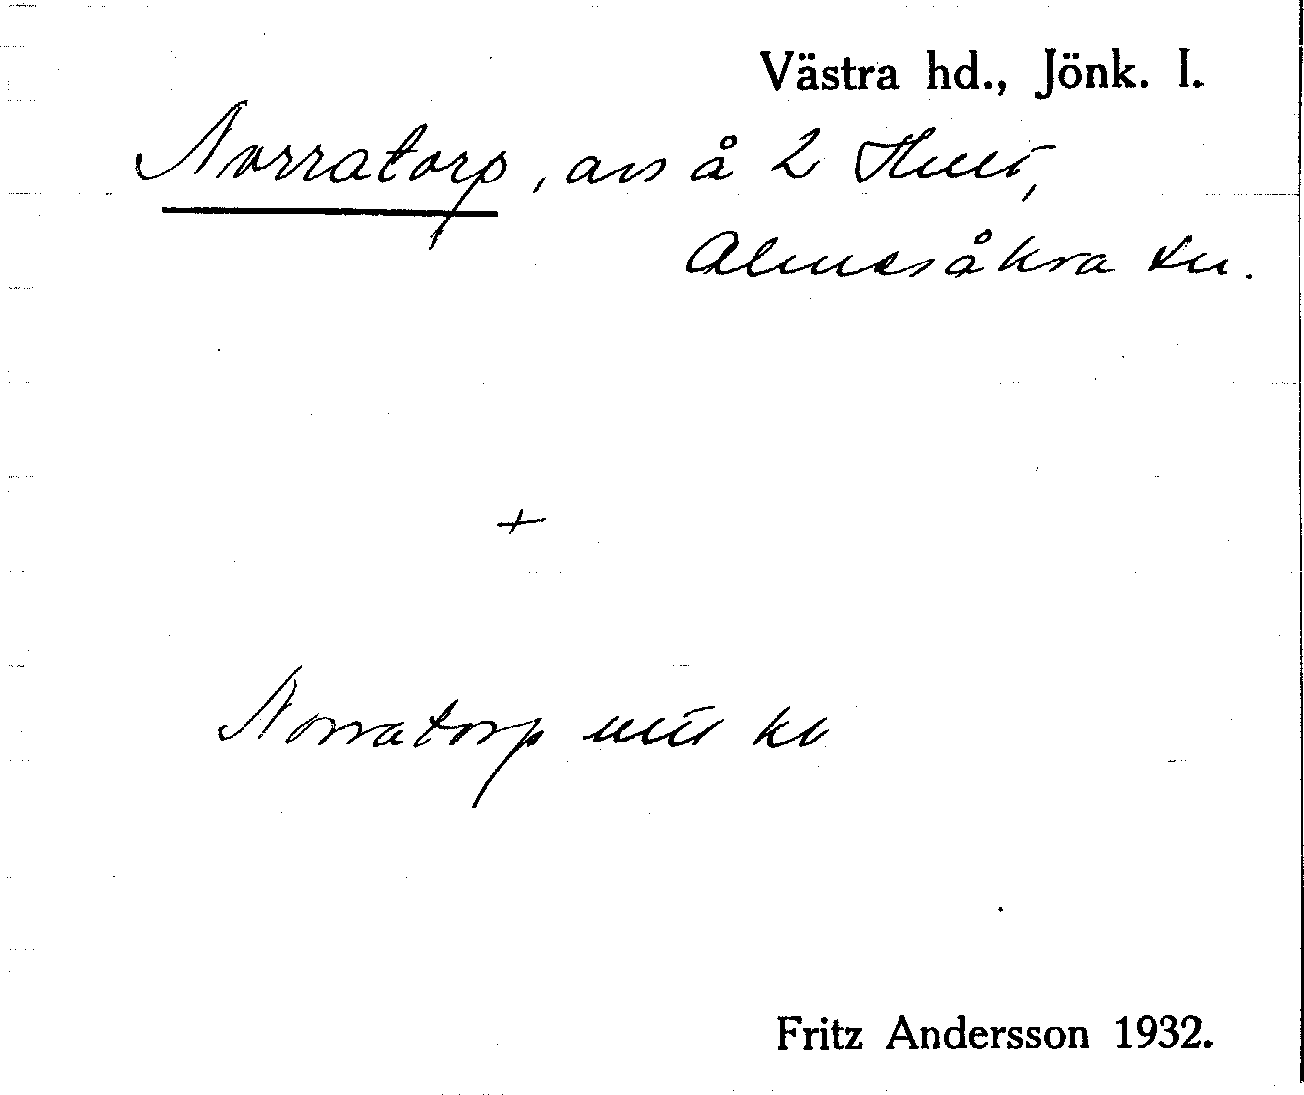 Västra hd., Jönk. l.
Norratorp, avs å 2 Hult,
Almesåkra sn.
+
Norratorp mtl kv
Fritz Andersson 1932.